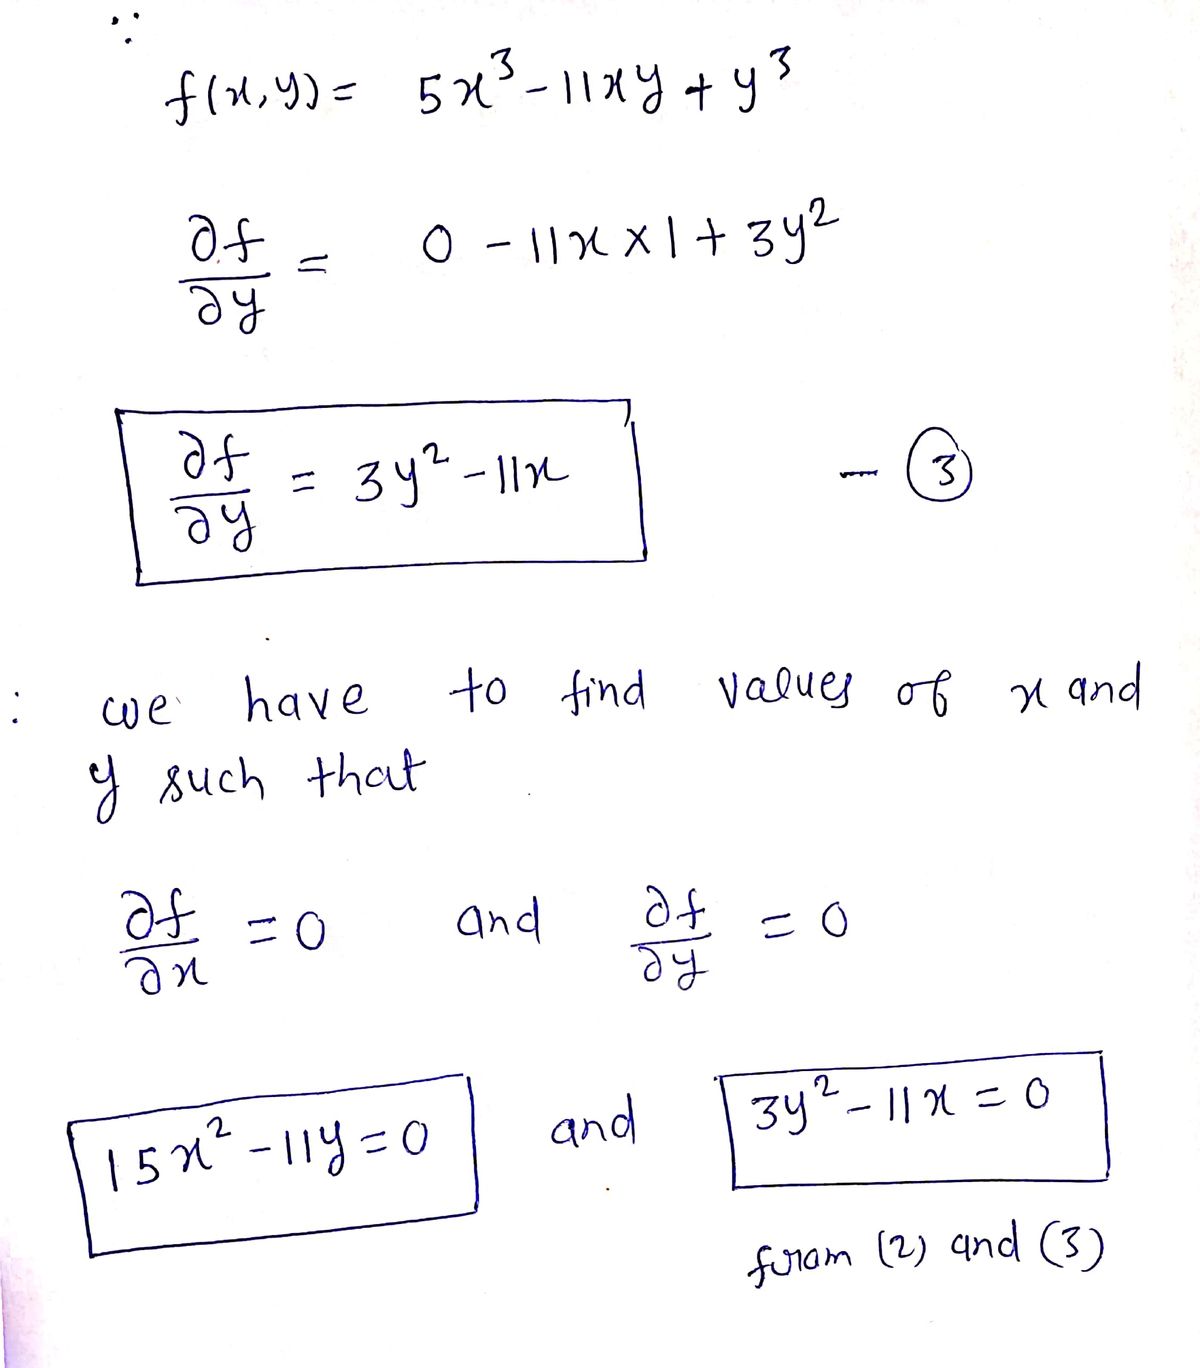 ∵
f(x,y) = 5x³ - 11xy + y³
∂f/∂y = 0 - 11x × 1 + 3y²
∂f/∂y = 3y² - 11x - (3)
: we have to find values of x and
y such that
∂f/∂x = 0 and ∂f/∂y = 0
15x² - 11y = 0 and 3y² - 11x = 0
from (2) and (3)